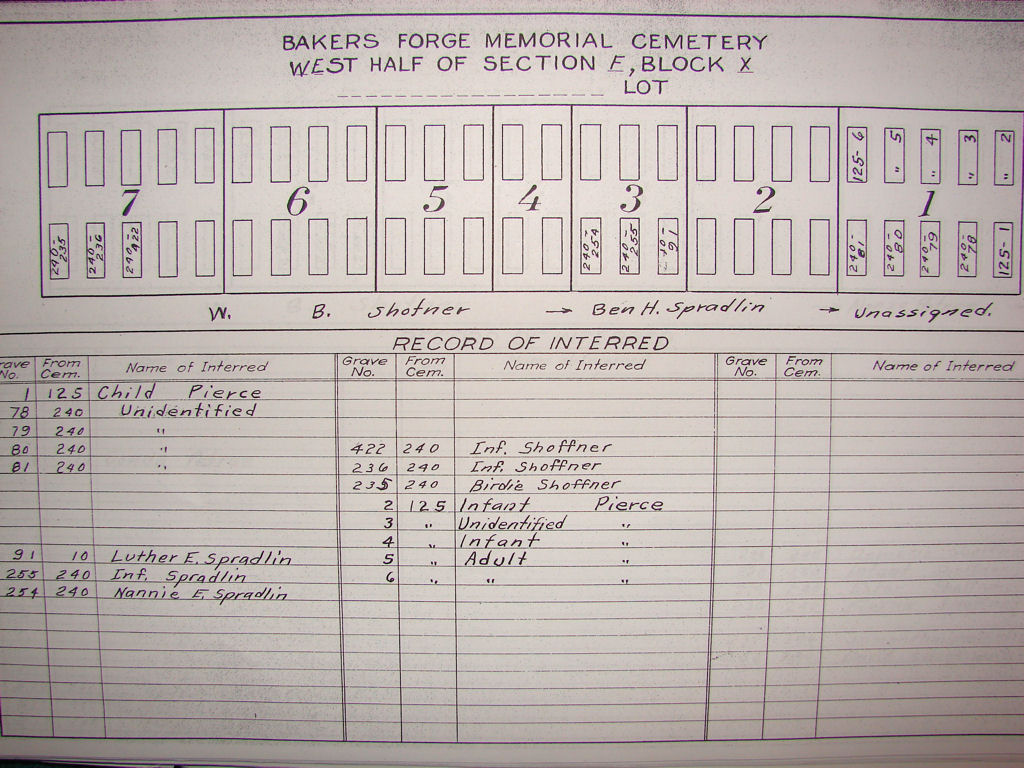 BAKERS FORGE MEMORIAL CEMETERY
WEST HALF OF SECTION E, BLOCK X
LOT
125-6 " 5 " 4 " 3 " 2
7 6 5 4 3 2 1
240-235 240-236 240-422 240-254 240-255 240-91 240-81 240-80 240-79 240-78 125-1
W. B. Shofner → Ben H. Spradlin → Unassigned.
RECORD OF INTERRED
Grave No. From Cem. Name of Interred Grave No. From Cem. Name of Interred Grave No. From Cem. Name of Interred
1 125 Child Pierce
78 240 Unidentified
79 240 "
80 240 " 422 240 Inf. Shoffner
81 240 " 236 240 Inf. Shoffner
235 240 Birdie Shoffner
2 125 Infant Pierce
3 " Unidentified "
4 " Infant "
91 10 Luther E. Spradlin 5 " Adult "
255 240 Inf. Spradlin 6 " " "
254 240 Nannie E. Spradlin